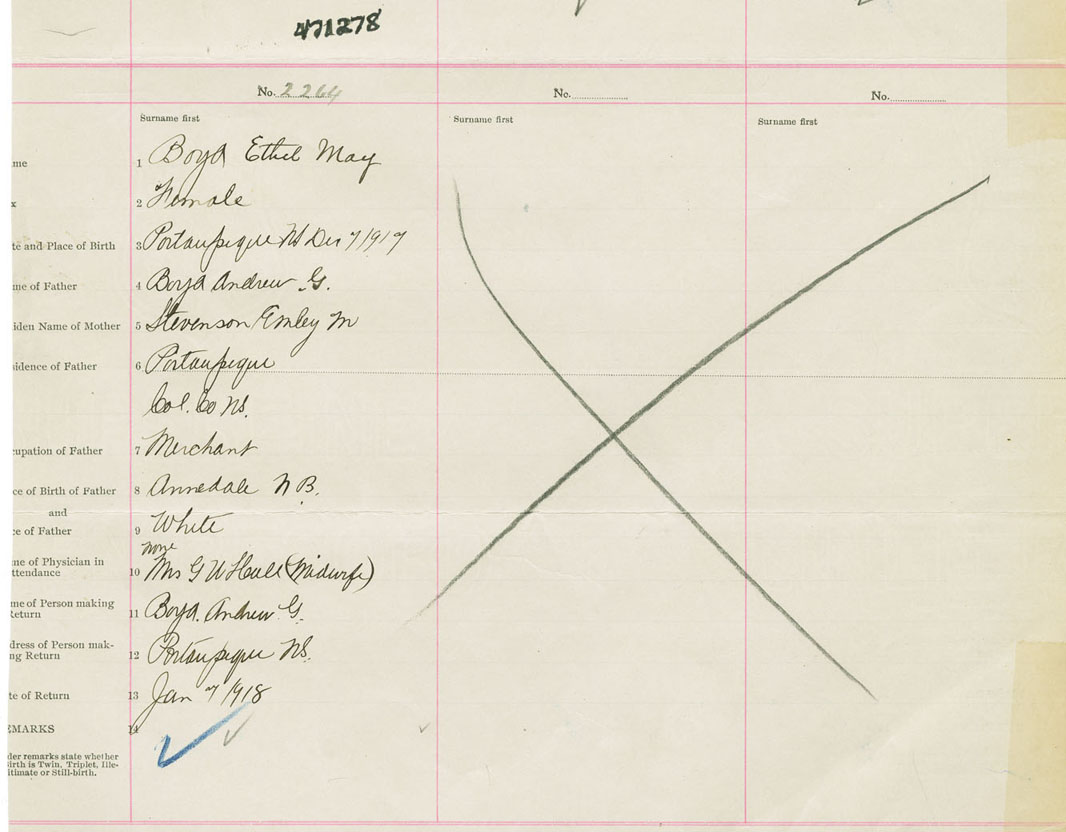 471278
No. 2264 No. No.
Surname first Surname first Surname first
me 1 Boyd Ethel May
x 2 Female
te and Place of Birth 3 Portaupique NS Dec 7/1917
me of Father 4 Boyd Andrew G.
iden Name of Mother 5 Stevenson Emley M
idence of Father 6 Portaupique
Col. Co NS.
cupation of Father 7 Merchant
ce of Birth of Father 8 Annedale N B.
and
ce of Father 9 White
none
me of Physician in
ttendance 10 Mrs G W (Midwife)
me of Person making
Return 11 Boyd. Andrew G.
dress of Person mak-
ng Return 12 Portaupique NS.
te of Return 13 Jan 7 1918
EMARKS 14
der remarks state whether
Birth is Twin, Triplet, Ille-
itimate or Still-birth.